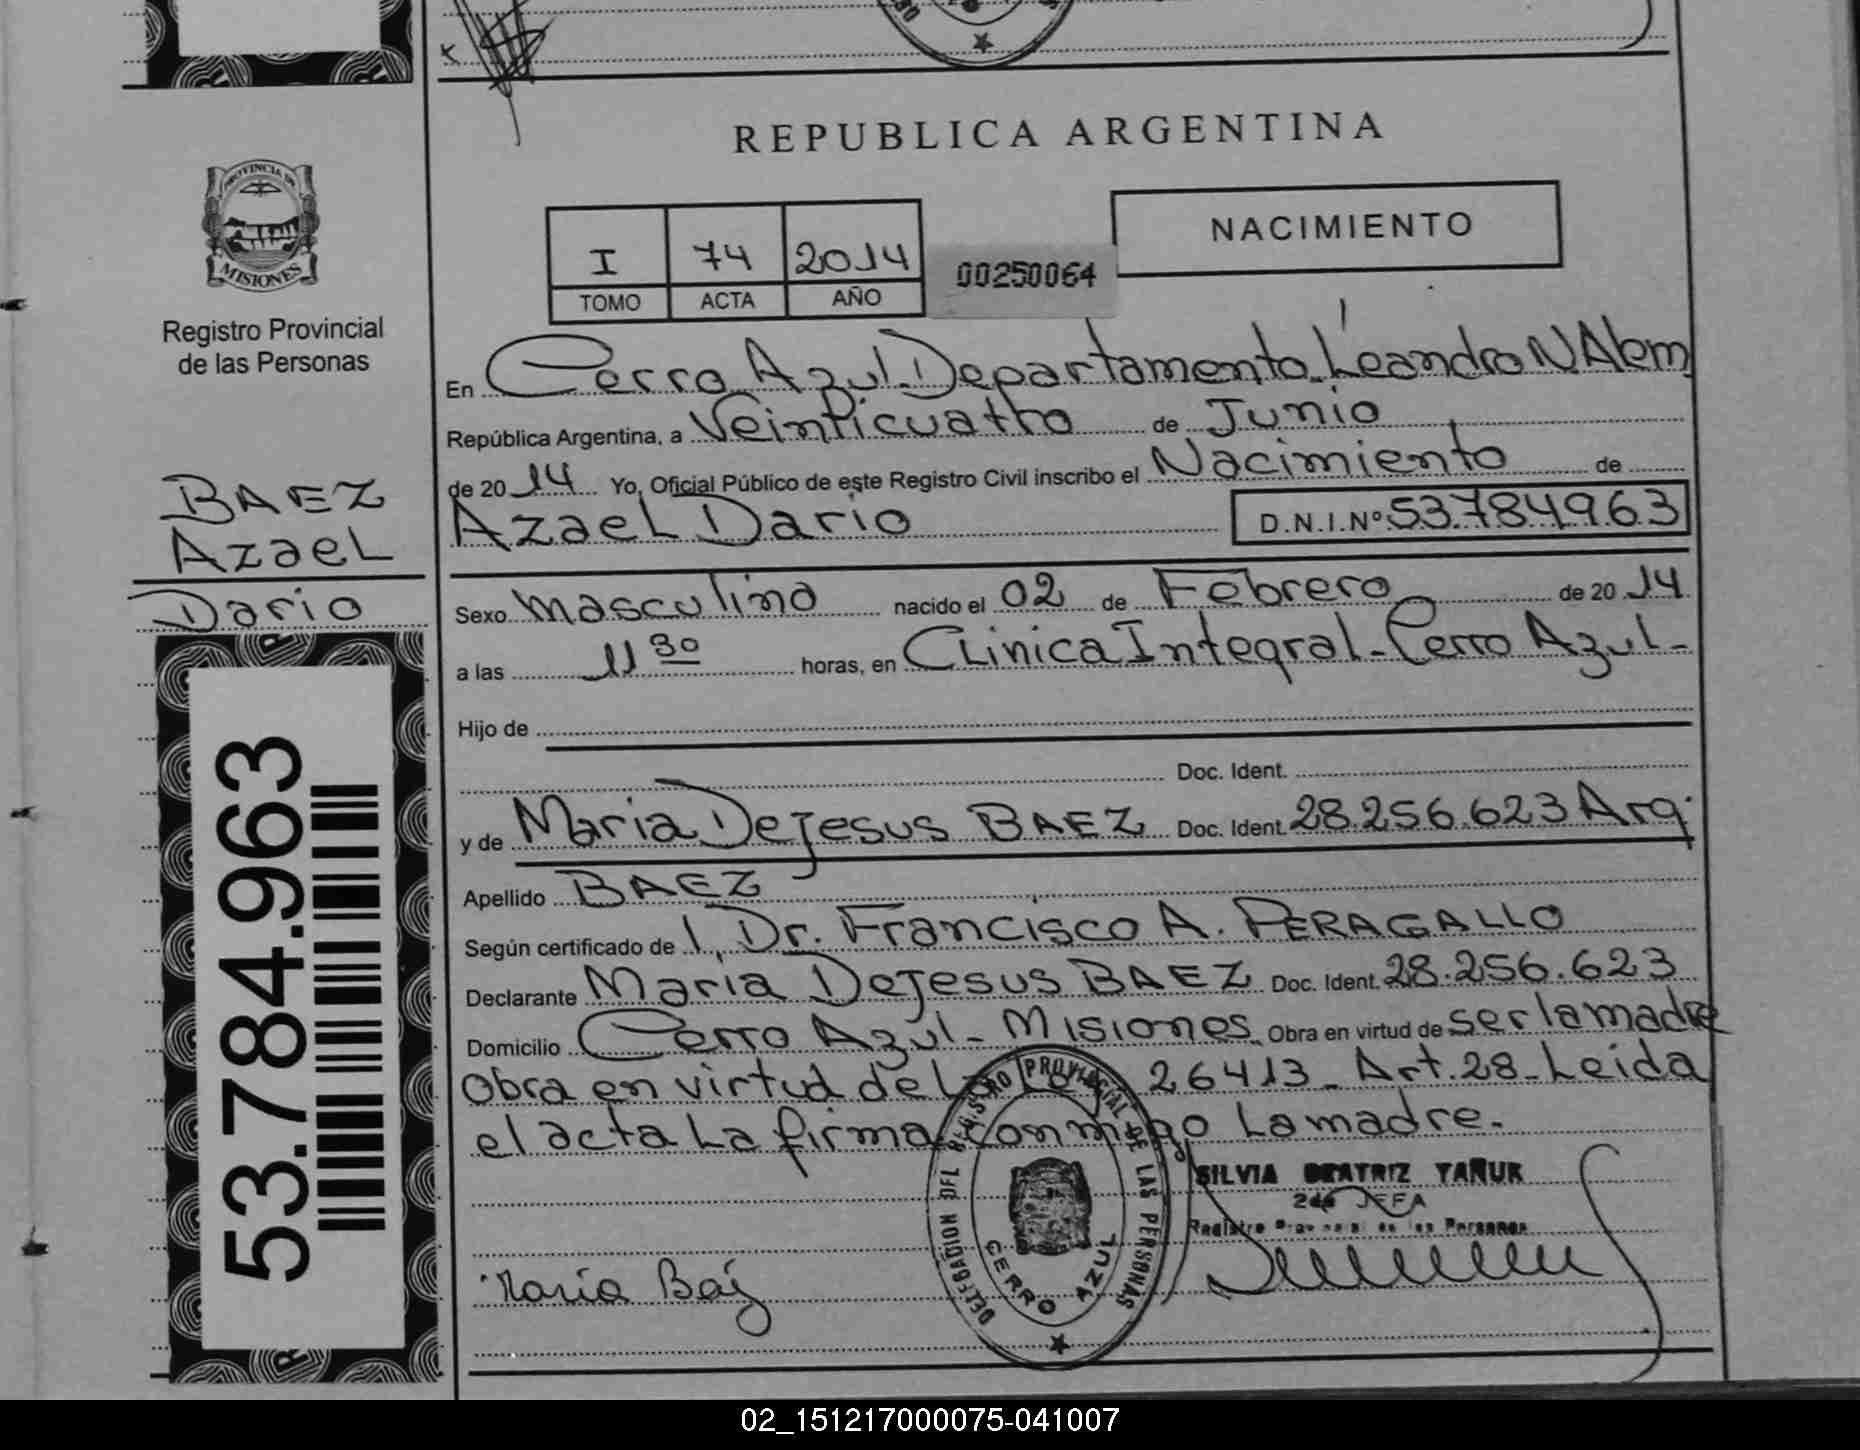 REPUBLICA ARGENTINA
PROVINCIA DE
MISIONES
Registro Provincial
de las Personas
I 74 2014
TOMO ACTA AÑO
00250064
NACIMIENTO
En Cerro Azul. Departamento Leandro N Alem
República Argentina, a Veinticuatro de Junio
de 20 14 Yo, Oficial Público de este Registro Civil inscribo el Nacimiento de
Azael Dario D.N.I.Nº 53.784.963
BAEZ
Azael
Dario
Sexo masculino nacido el 02 de Febrero de 20 14
a las 11 30 horas, en Clinica Integral - Cerro Azul -
Hijo de
Doc. Ident.
y de Maria De Jesus BAEZ Doc. Ident. 28.256.623 Arg.
Apellido BAEZ
Según certificado de Dr. Francisco A. PERAGALLO
Declarante Maria De Jesus BAEZ Doc. Ident. 28.256.623
Domicilio Cerro Azul - Misiones Obra en virtud de ser la madre
Obra en virtud de 26413 - Art. 28 - Leida
el acta La firma conmigo La madre.
53.784.963
DELEGACION DEL REGISTRO PROVINCIAL DE LAS PERSONAS
CERRO AZUL
SILVIA BEATRIZ YAÑUK
JEFA
Registro Provincial de las Personas
Maria Baez
02_151217000075-041007